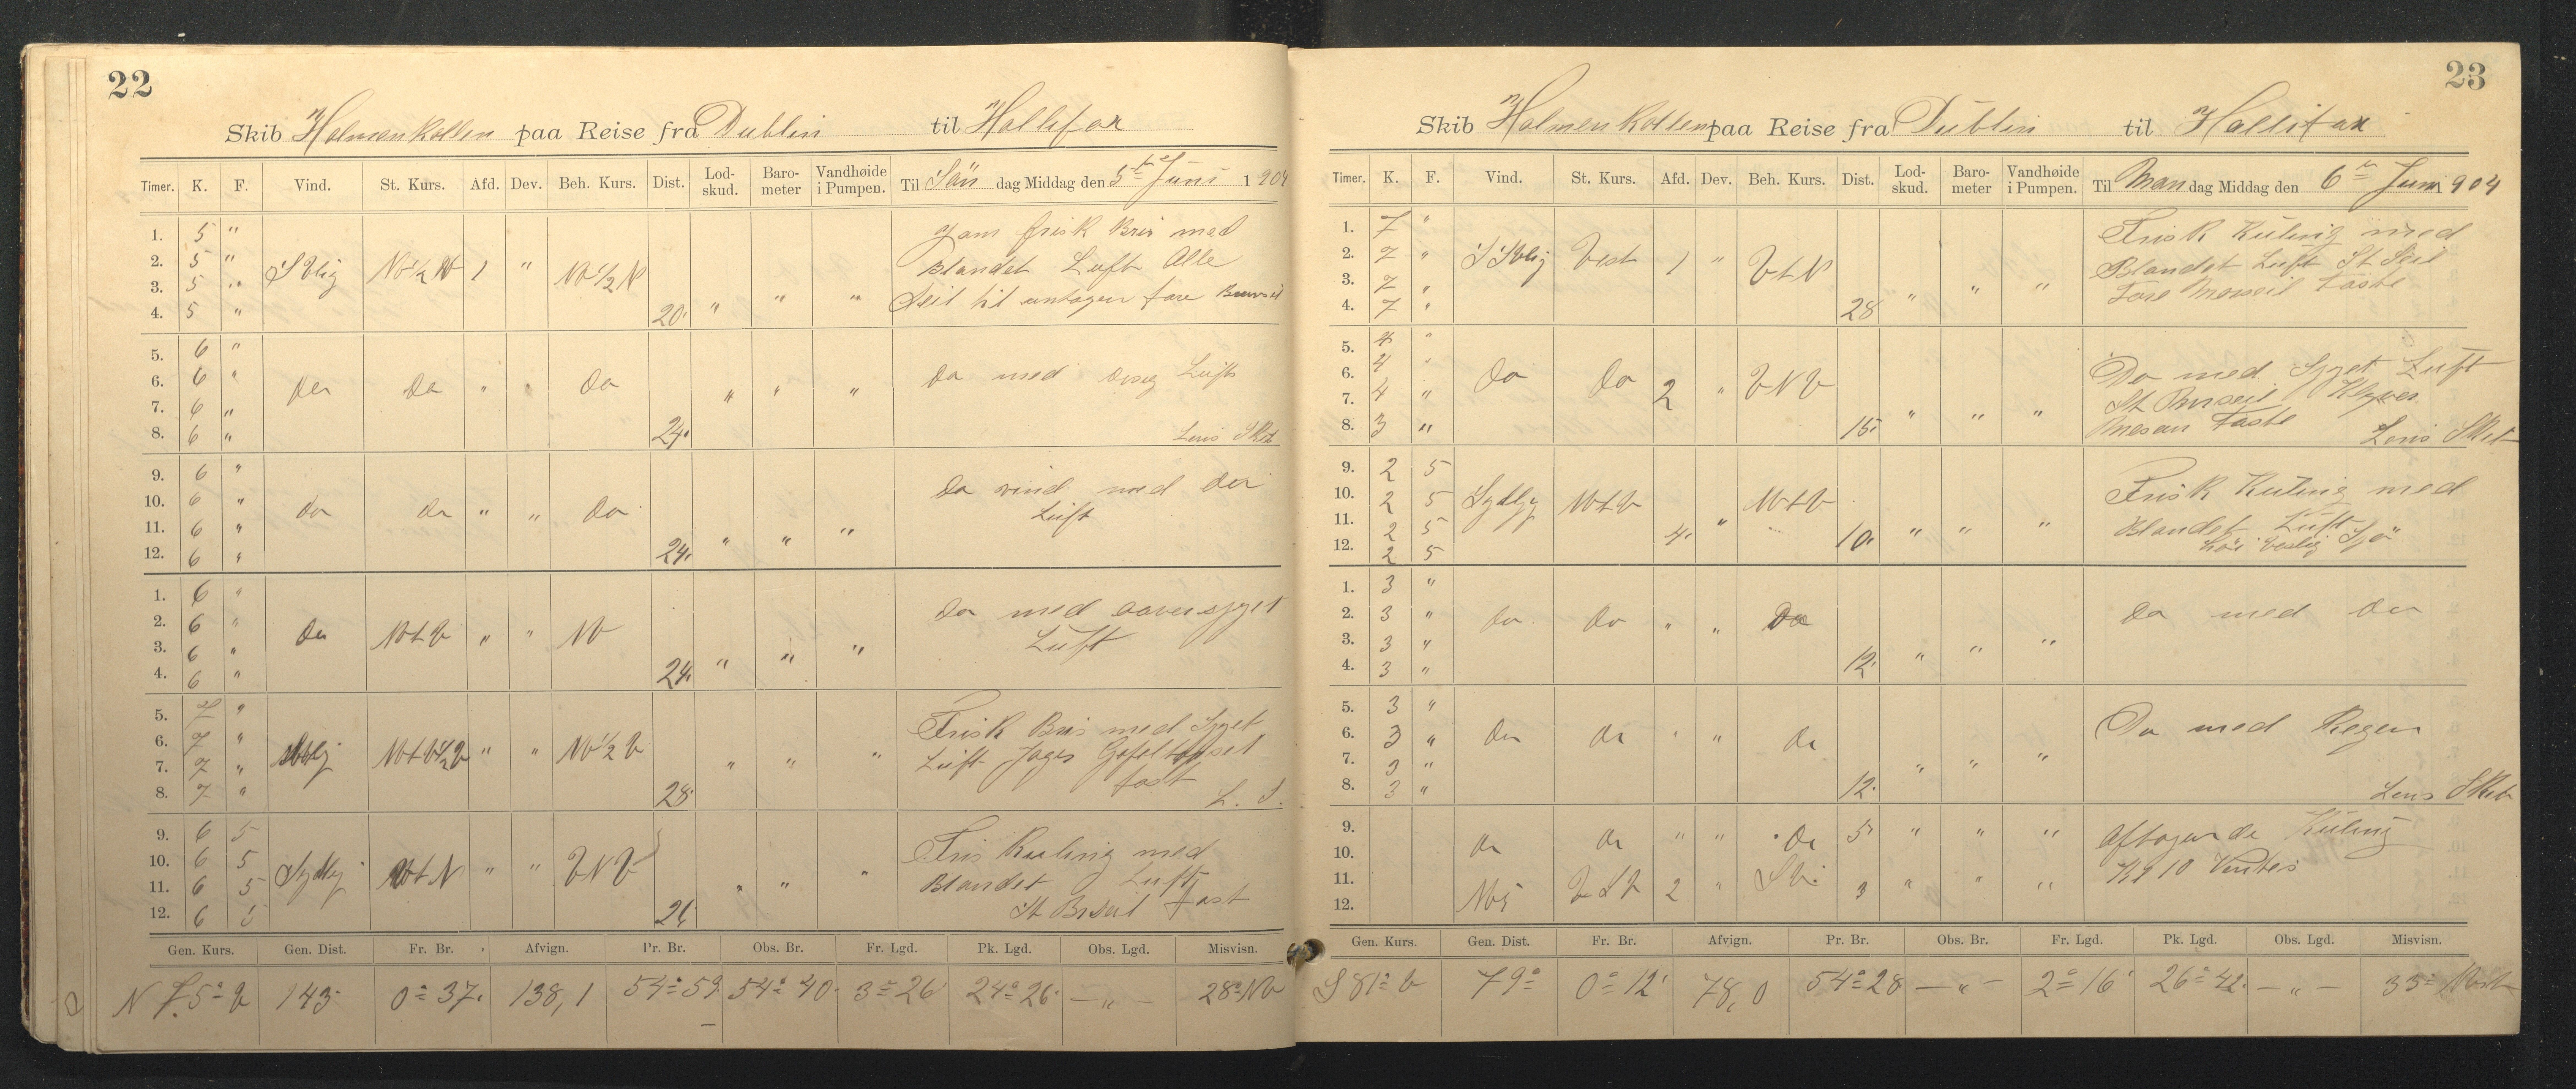 22
Skib Holmenkollen paa Reise fra Dublin til Hallifax
Timer. K. F. Vind. St. Kurs. Afd. Dev. Beh. Kurs. Dist. Lod-skud. Baro-meter Vandhøide i Pumpen. Til Søn dag Middag den 5te Juni 1904
1. 5 " Jam frisk Bris med
2. 5 " S Vlig NV½V 1 " NV½N Blandet Luft Alle
3. 5 "
4. 5 " 20. " " " Seil til untagen fore
5. 6 "
6. 6 " Do Do " " Do Do med Luft
7. 6 " " " "
8. 6 " 24. Lens Sket
9. 6 "
10. 6 " Do Do " " Do Do vind med Do
11. 6 " Luft
12. 6 " 24. " " "
1. 6 " Do med
2. 6 " Do NVtV " " NV Luft
3. 6 "
4. 6 " 24. " " "
5. 7 " Frisk Bris med Syget
6. 7 " NVtV½V " " NV½V Luft
7. 7 " " " " fast
8. 7 " 28. L. S.
9. 6 5 Fris Kuling med
10. 6 5 Sydlig VtN " " VNV Blandet Luft
11. 6 5 " " "
12. 6 5 26. St Bseil fast
Gen. Kurs. Gen. Dist. Fr. Br. Afvign. Pr. Br. Obs. Br. Fr. Lgd. Pk. Lgd. Obs. Lgd. Misvisn.
N 75° V 143 0° 37. 138,1 54° 59 54° 40. 3° 26 24° 26. — " — 28° NV
23
Skib Holmenkollen paa Reise fra Dublin til Hallifax
Timer. K. F. Vind. St. Kurs. Afd. Dev. Beh. Kurs. Dist. Lod-skud. Baro-meter Vandhøide i Pumpen. Til Man dag Middag den 6te Juni 1904
1. 7 " Frisk Kuling med
2. 7 " S Vlig Vest 1 " VtN Blandet Luft St Seil
3. 7 " Fore Merseil Faste
4. 7 " 28 " " "
5. 4 "
6. 4 " Do Do 2 " VNV Do med Syget Luft
7. 4 " St Klyver
8. 3 " 15. " " " Mesan Faste Lens Sket
9. 2 5 Frisk Kuling med
10. 2 5 Sydlig NVtV " NVtV
11. 2 5 Blandet Luft
12. 2 5 4. 10. " " " høi Vestlig Sjø
1. 3 "
2. 3 " Do Do " " Do Do med Do
3. 3 "
4. 3 " 12. " " "
5. 3 "
6. 3 " Do Do " " Do Do med Regen
7. 3 " " " "
8. 3 " 12. Lens Sket
9. Do Do " " Do 5 " " " Aftagende Kuling
10. Kl 10 Vendes
11. VSV 2 " SV. 3 " " "
12.
Gen. Kurs. Gen. Dist. Fr. Br. Afvign. Pr. Br. Obs. Br. Fr. Lgd. Pk. Lgd. Obs. Lgd. Misvisn.
S 81° V 79° 0° 12' 78,0 54° 28 — " — 2° 16' 26° 42. — " — 35°